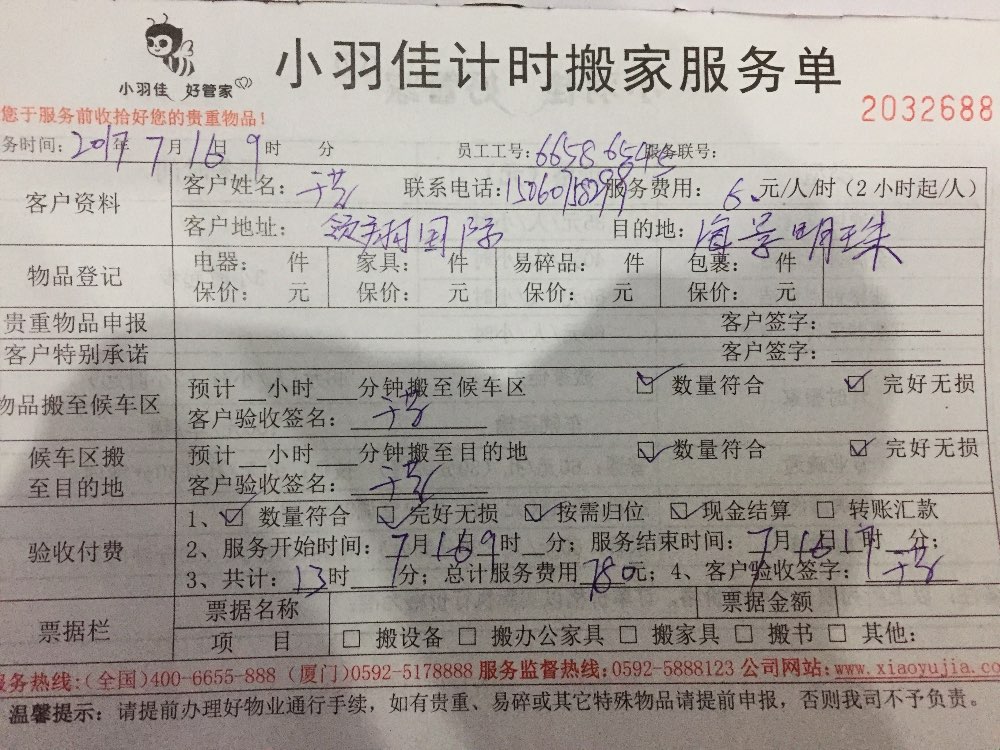 小羽佳 好管家
小羽佳计时搬家服务单
2032688
您于服务前收拾好您的贵重物品！
务时间：2017年7月16日9时 分 员工工号：6658 6545 服务联号：
客户资料 客户姓名： 联系电话： 服务费用： 元/人/时（2小时起/人）
客户地址： 国际 目的地：海景明珠
物品登记 电器： 件 家具： 件 易碎品： 件 包裹： 件
保价： 元 保价： 元 保价： 元 保价： 元
贵重物品申报 客户签字：
客户特别承诺 客户签字：
物品搬至候车区 预计 小时 分钟搬至候车区 ☑ 数量符合 ☑ 完好无损
客户验收签名：
候车区搬至目的地 预计 小时 分钟搬至目的地 ☑ 数量符合 ☑ 完好无损
客户验收签名：
验收付费 1、☑ 数量符合 ☑ 完好无损 ☑ 按需归位 ☑ 现金结算 □ 转账汇款
2、服务开始时间：7月16日9时 分；服务结束时间：7月16日 时 分；
3、共计：13时 分；总计服务费用780元；4、客户验收签字：
票据栏 票据名称 票据金额
项 目 □ 搬设备 □ 搬办公家具 □ 搬家具 □ 搬书 □ 其他：
服务热线：（全国）400-6655-888（厦门）0592-5178888 服务监督热线：0592-5888123 公司网站：www.xiaoyujia.co
温馨提示：请提前办理好物业通行手续，如有贵重、易碎或其它特殊物品请提前申报，否则我司不予负责。